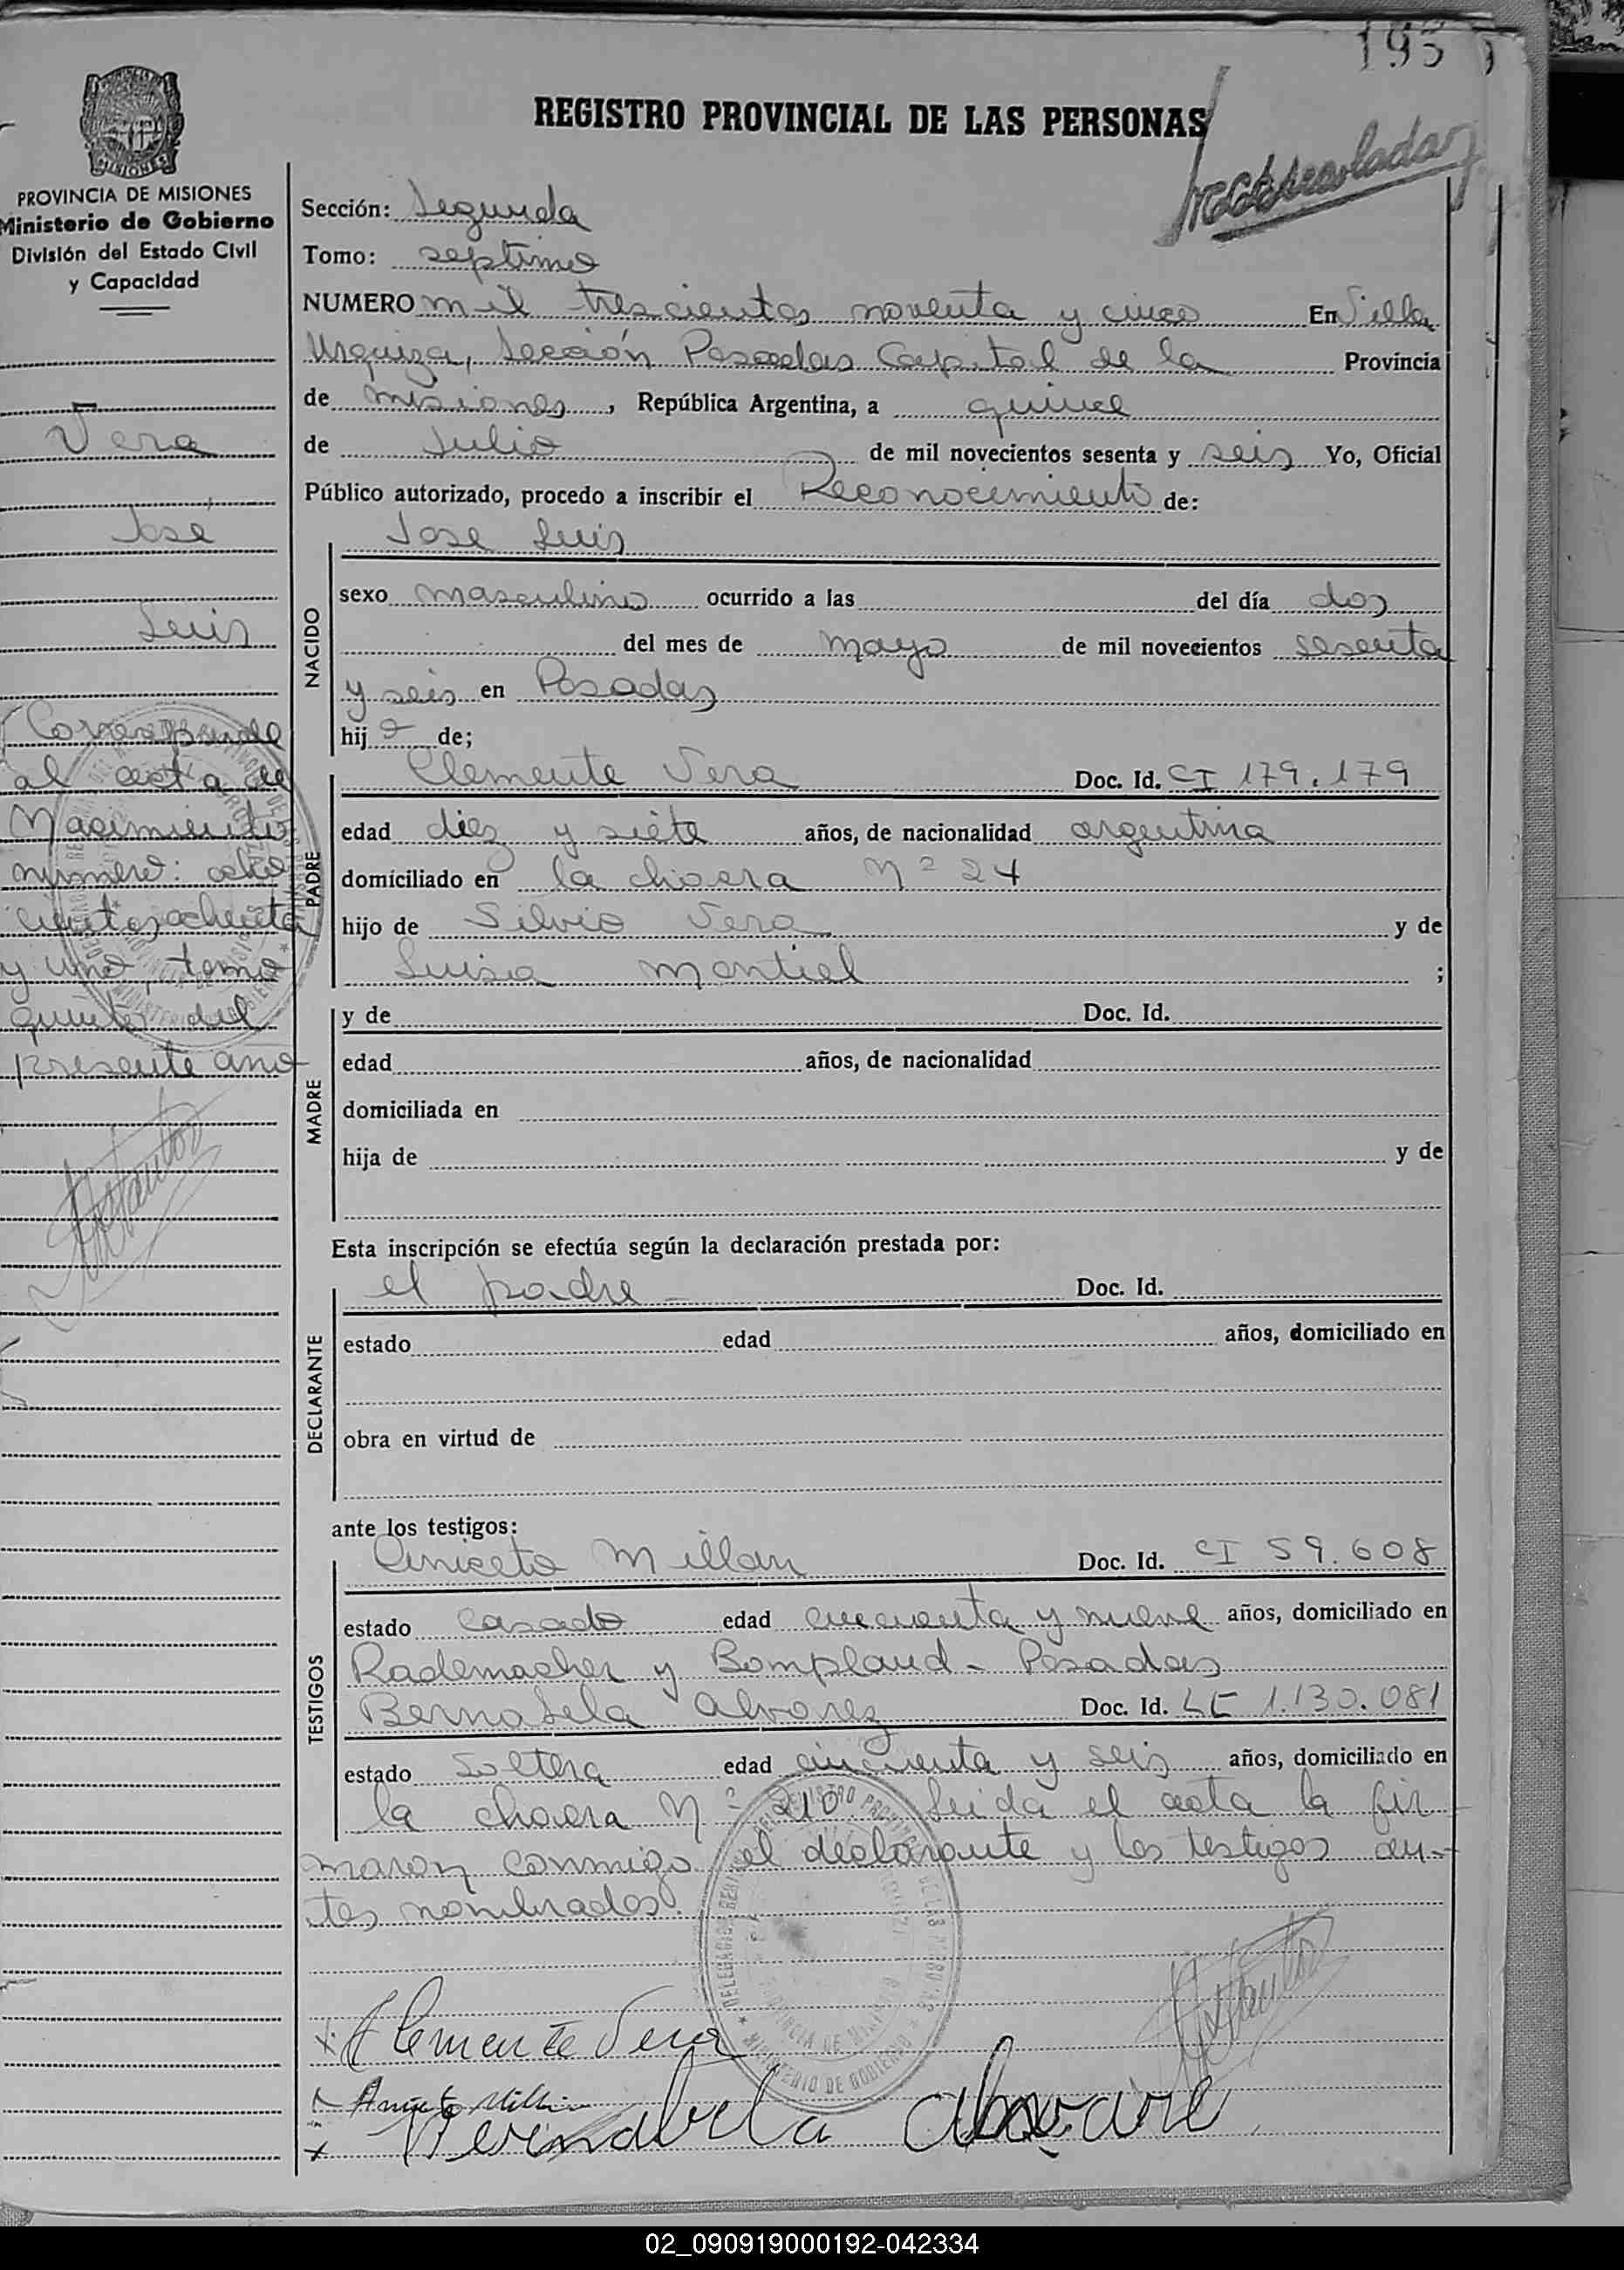 195
REGISTRO PROVINCIAL DE LAS PERSONAS
PROVINCIA DE MISIONES
Ministerio de Gobierno
División del Estado Civil
y Capacidad
Vera
José
Luis
Corresponde
al acta de
Nacimiento
número: ocho
cientos ochenta
y uno, tomo
quinto del
presente año
Sección: Segunda
Tomo: septimo
NUMERO mil trescientos noventa y cinco En Villa
Urquiza, Sección Posadas Capital de la Provincia
de misiones, República Argentina, a quince
de Julio de mil novecientos sesenta y seis Yo, Oficial
Público autorizado, procedo a inscribir el Reconocimiento de:
NACIDO
Jose Luis
sexo masculino ocurrido a las del día dos
del mes de mayo de mil novecientos sesenta
y seis en Posadas
hij o de;
PADRE
Clemente Vera Doc. Id. CI 179.179
edad diez y siete años, de nacionalidad argentina
domiciliado en la chacra Nº 24
hijo de Silvio Vera y de
Luisa Montiel ;
MADRE
y de Doc. Id.
edad años, de nacionalidad
domiciliada en
hija de y de
Esta inscripción se efectúa según la declaración prestada por:
DECLARANTE
el padre - Doc. Id.
estado edad años, domiciliado en
obra en virtud de
ante los testigos:
TESTIGOS
Aniceto Millan Doc. Id. CI 59.608
estado Casado edad cincuenta y nueve años, domiciliado en
Rademacher y Bompland - Posadas
Bernabela Alvarez Doc. Id. LC 1.130.081
estado Soltera edad cincuenta y seis años, domiciliado en
la chacra Nº 210. Leida el acta la fir
maron conmigo el declarante y los testigos an-
tes nombrados.
Clemente Vera
Aniceto Millan
02_090919000192-042334